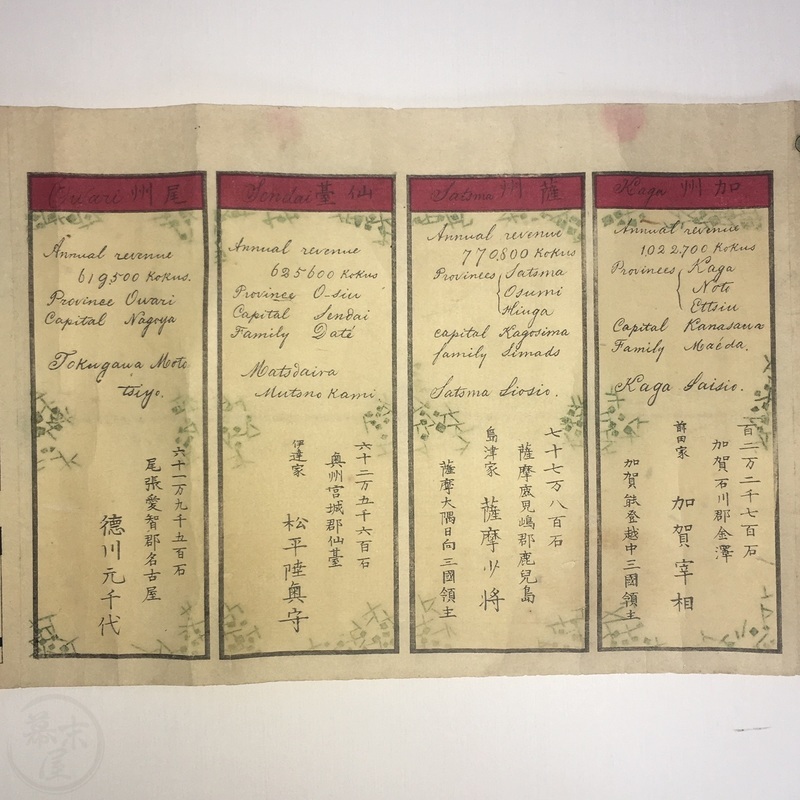 Owari 尾州
Annual revenue
619,500 Kokus.
Province Owari
Capital Nagoya
Tokugawa Moto
tsiyo.
六十一万九千五百石
尾張愛智郡名古屋
德川元千代
Sendai 仙臺
Annual revenue
625600 Kokus
Province O-siu
Capital Sendai
Family Daté
Matsdaira
Mutsno Kami.
六十二万五千六百石
奥州宮城郡仙臺
伊達家 松平陸奥守
Satsma 薩州
Annual revenue
770,800 Kokus
Provinces { Satsma
Osumi
Hiuga
capital Kagosima
family Simads
Satsma Siosio.
七十七万八百石
薩摩鹿児嶋郡鹿兒島
島津家 薩摩少将
薩摩大隅日向三國領主
Kaga 加州
Annual revenue
1,022,700 Kokus
Provinces { Kaga
Noto
Ettsiu
Capital Kanasawa
Family Maéda.
Kaga Saisio.
百二万二千七百石
加賀石川郡金澤
前田家 加賀宰相
加賀能登越中三國領主
幕末屋